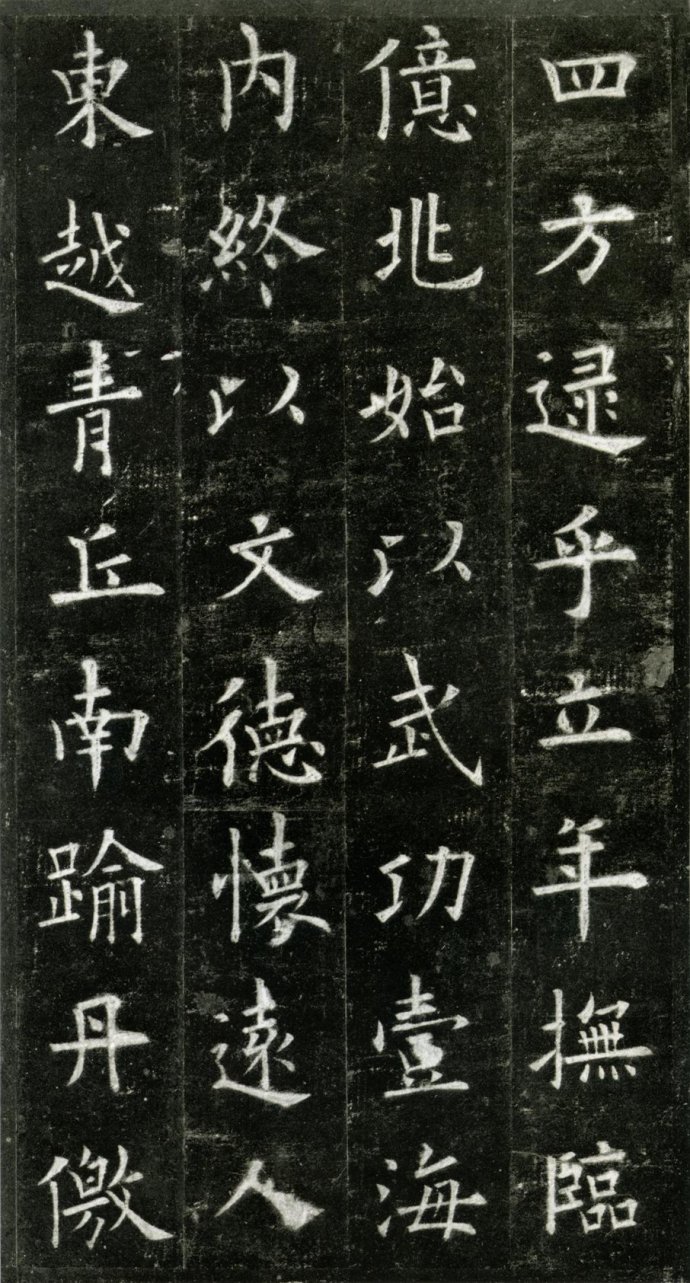 四方逯乎立年撫臨
億兆始以武功壹海
內終以文德懷遠人
東越青丘南踰丹儌